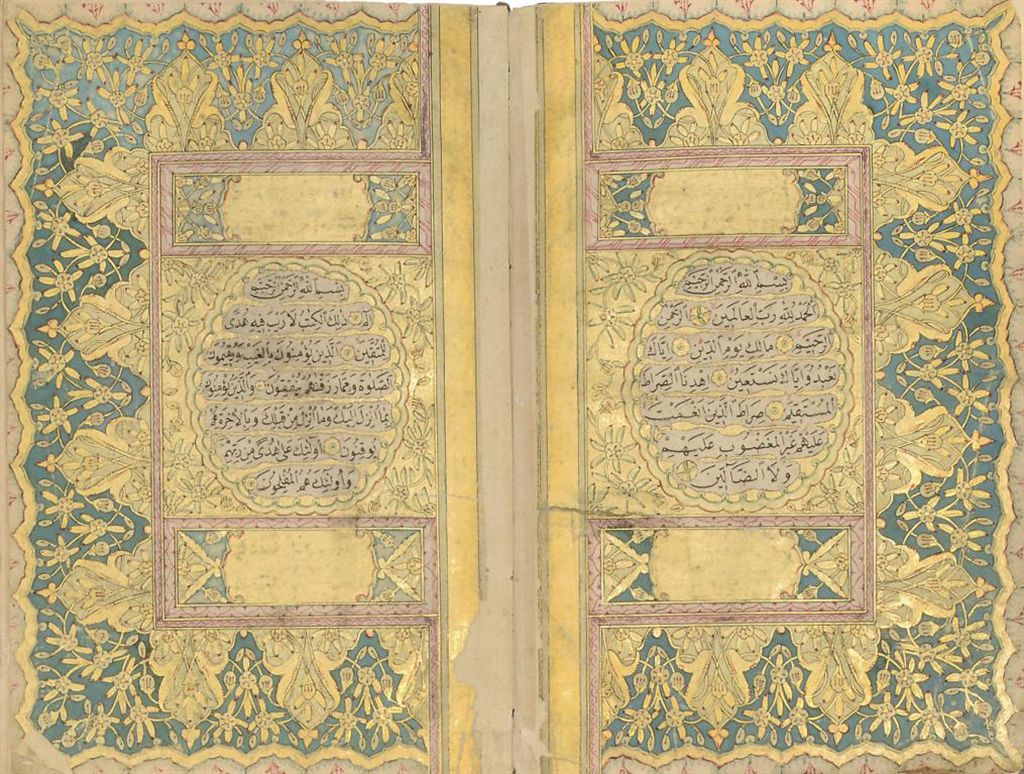 بِسْمِ اللهِ الرَّحْمٰنِ الرَّحِيمِ
الْحَمْدُ لِلّٰهِ رَبِّ الْعَالَمِينَ الرَّحْمٰنِ
الرَّحِيمِ مَالِكِ يَوْمِ الدِّينِ اِيَّاكَ
نَعْبُدُ وَاِيَّاكَ نَسْتَعِينُ اِهْدِنَا الصِّرَاطَ
الْمُسْتَقِيمَ صِرَاطَ الَّذِينَ اَنْعَمْتَ
عَلَيْهِمْ غَيْرِ الْمَغْضُوبِ عَلَيْهِمْ
وَلَا الضَّالِّينَ
بِسْمِ اللهِ الرَّحْمٰنِ الرَّحِيمِ
الم ذٰلِكَ الْكِتٰبُ لَا رَيْبَ فِيهِ هُدًى
لِلْمُتَّقِينَ الَّذِينَ يُؤْمِنُونَ بِالْغَيْبِ وَيُقِيمُونَ
الصَّلٰوةَ وَمِمَّا رَزَقْنَاهُمْ يُنْفِقُونَ وَالَّذِينَ يُؤْمِنُونَ
بِمَا اُنْزِلَ اِلَيْكَ وَمَا اُنْزِلَ مِنْ قَبْلِكَ وَبِالْاٰخِرَةِ هُمْ
يُوقِنُونَ اُولٰئِكَ عَلٰى هُدًى مِنْ رَبِّهِمْ
وَاُولٰئِكَ هُمُ الْمُفْلِحُونَ